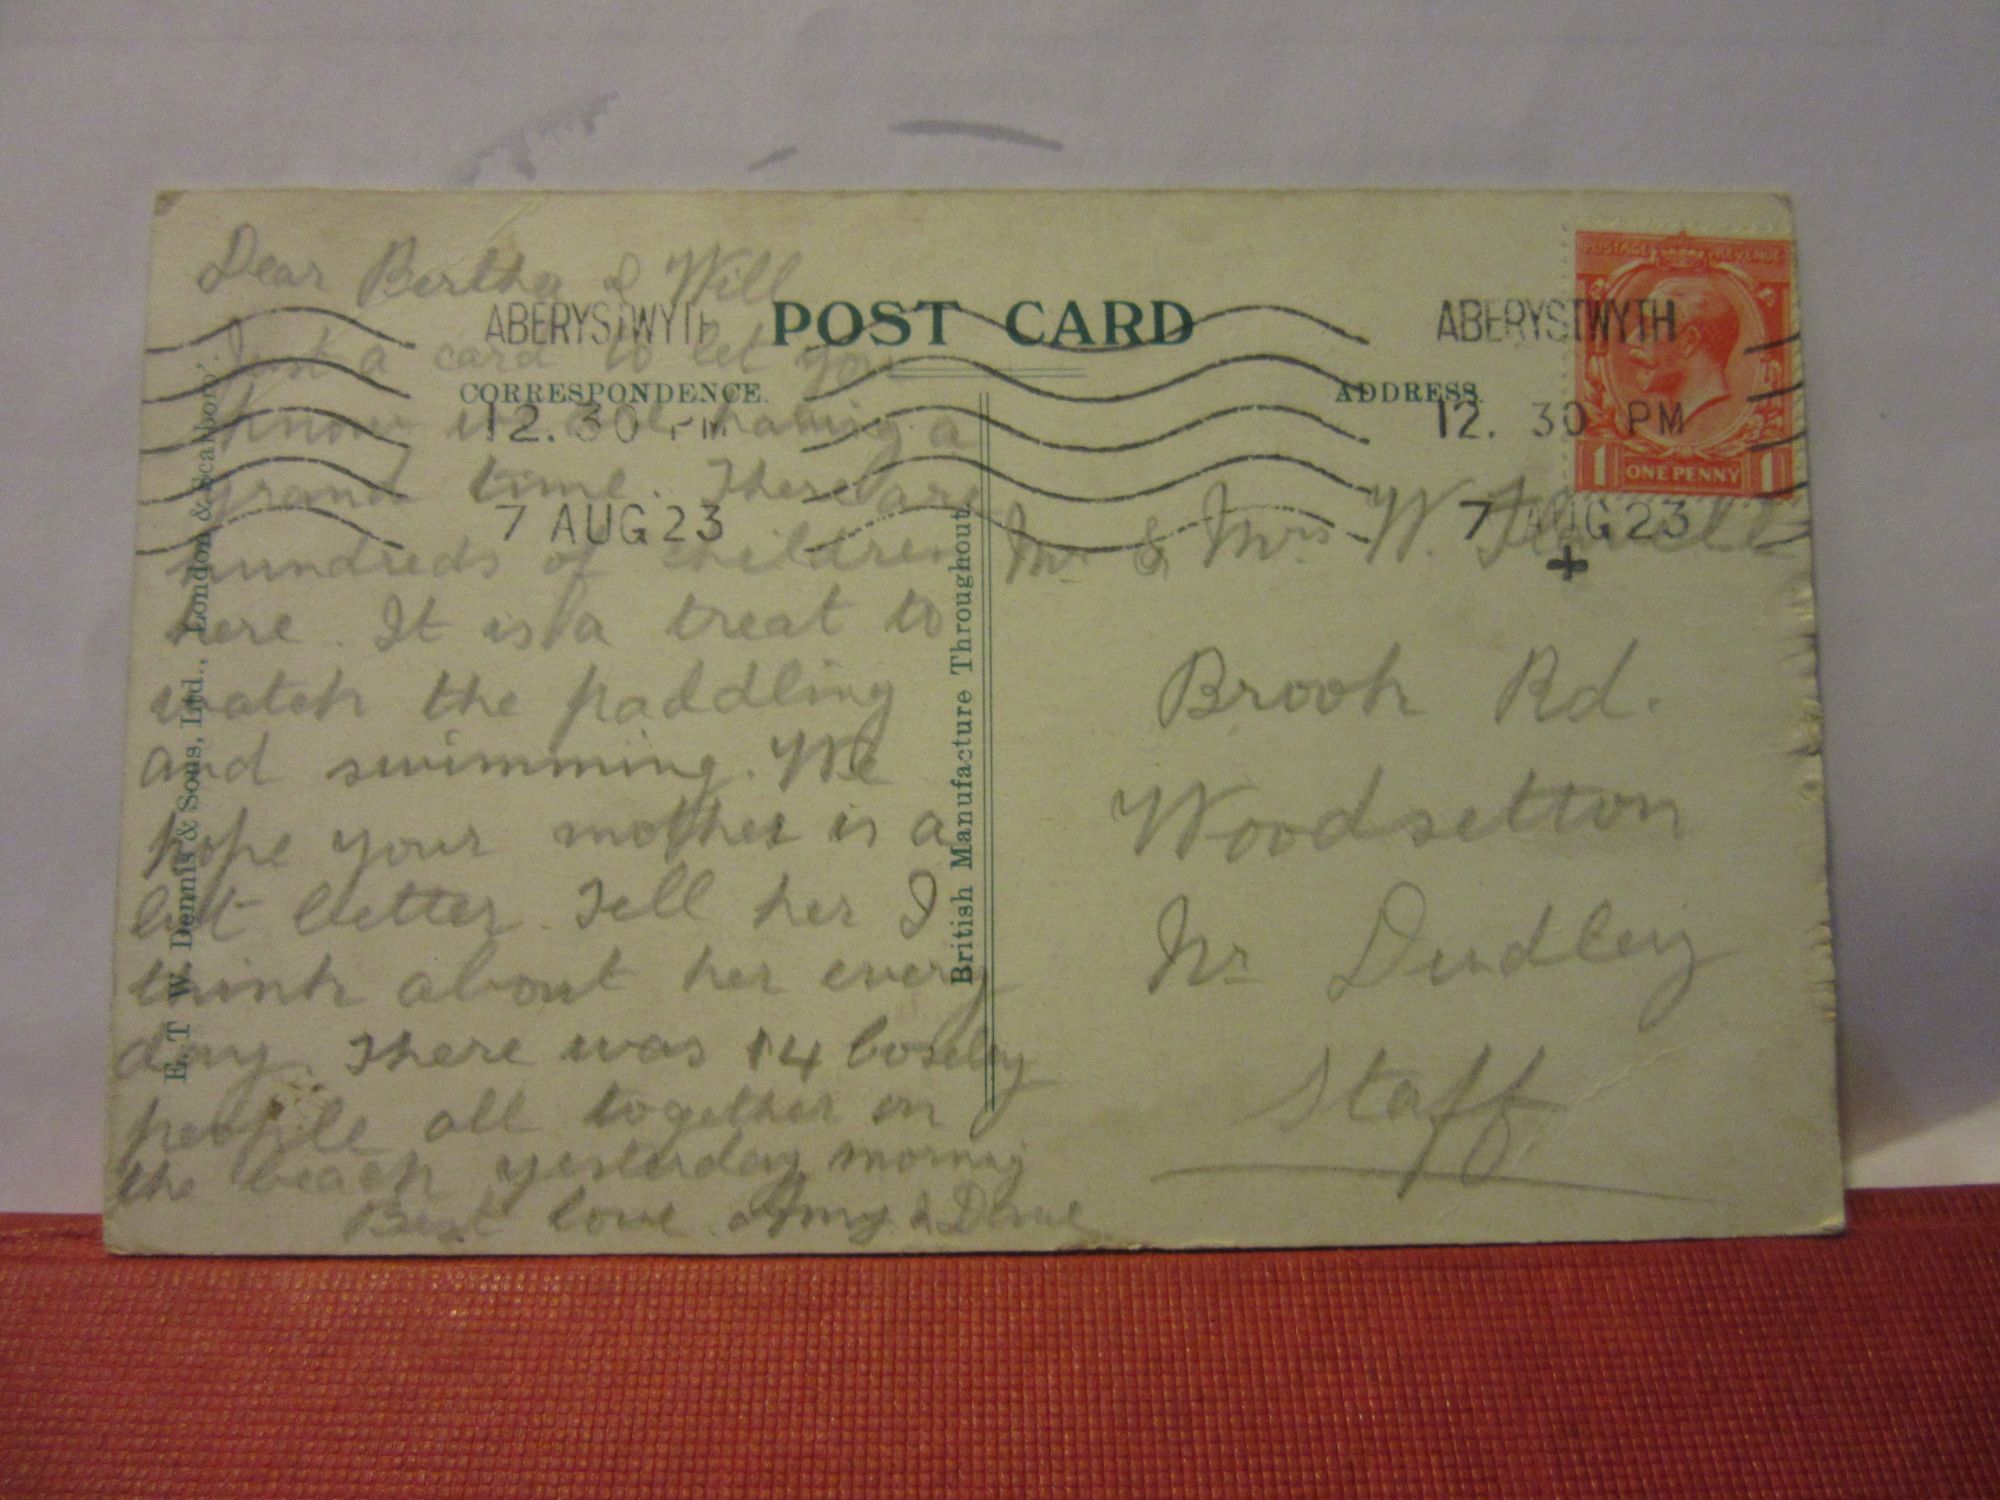 POST CARD
CORRESPONDENCE.
ADDRESS.
ABERYSTWYTH
12. 30 PM
7 AUG 23
ABERYSTWYTH
12. 30 PM
7 AUG 23
POSTAGE REVENUE
1 ONE PENNY 1
Dear Bertha & Will
Just a card to let you
know we are having a
grand time. There are
hundreds of children
here. It is a treat to
watch the paddling
and swimming. We
hope your mother is a
bit better. Tell her I
think about her every
day. There was 14 Coseley
people all together on
the beach yesterday morning
Best love Amy &
Mr & Mrs W.
Brook Rd.
Woodsetton
Nr Dudley
Staff
E. T. W. Dennis & Sons, Ltd., London & Scarboro'.
British Manufacture Throughout.